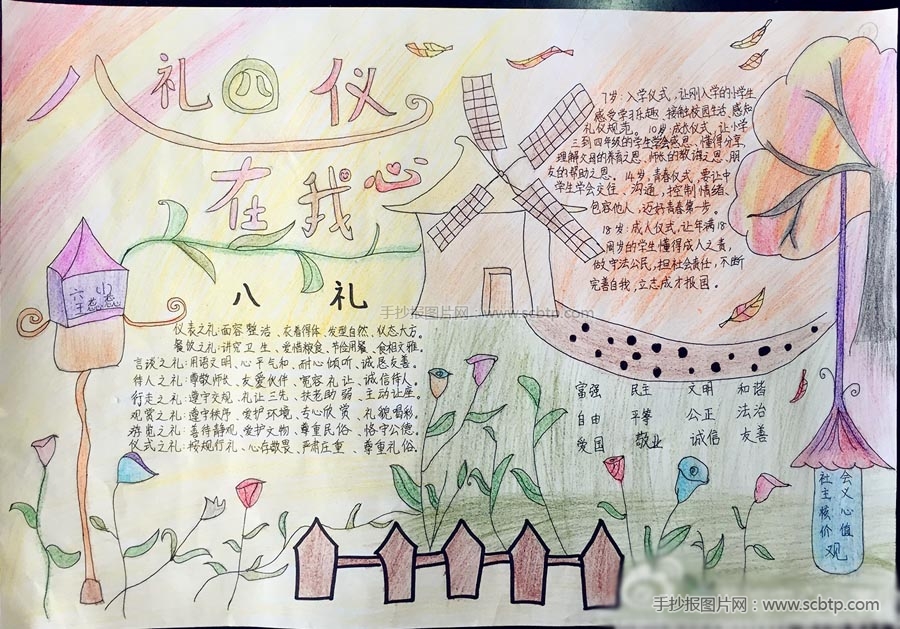 八礼四仪
在我心
7岁：入学仪式，让刚入学的小学生
感受学习乐趣、接触校园生活、感知
礼仪规范。10岁：成长仪式，让小学
三到四年级的学生学会感恩、懂得分享，
理解父母的养育之恩、师长的教诲之恩、朋
友的帮助之恩。14岁：青春仪式，要让中
学生学会交往、沟通，控制情绪、
包容他人，迈好青春第一步。
18岁：成人仪式，让年满18
周岁的学生懂得成人之责，
做守法公民，担社会责任，不断
完善自我，立志成才报国。
六(1)
八 礼
手抄报图片网：www.scbtp.com
仪表之礼：面容整洁、衣着得体、发型自然、仪态大方。
餐饮之礼：讲究卫生、爱惜粮食、节俭用餐、食相文雅。
言谈之礼：用语文明、心平气和、耐心倾听、诚恳友善。
待人之礼：尊敬师长、友爱伙伴、宽容礼让、诚信待人。
行走之礼：遵守交规、礼让三先、扶老助弱、主动让座。
观赏之礼：遵守秩序、爱护环境、专心欣赏、礼貌喝彩。
游览之礼：善待静观、爱护文物、尊重民俗、恪守公德。
仪式之礼：按规行礼、心存敬畏、严肃庄重、尊重礼俗。
富强 民主 文明 和谐
自由 平等 公正 法治
爱国 敬业 诚信 友善
社会
主义
核心
价值
观
手抄报图片网：www.scbtp.com